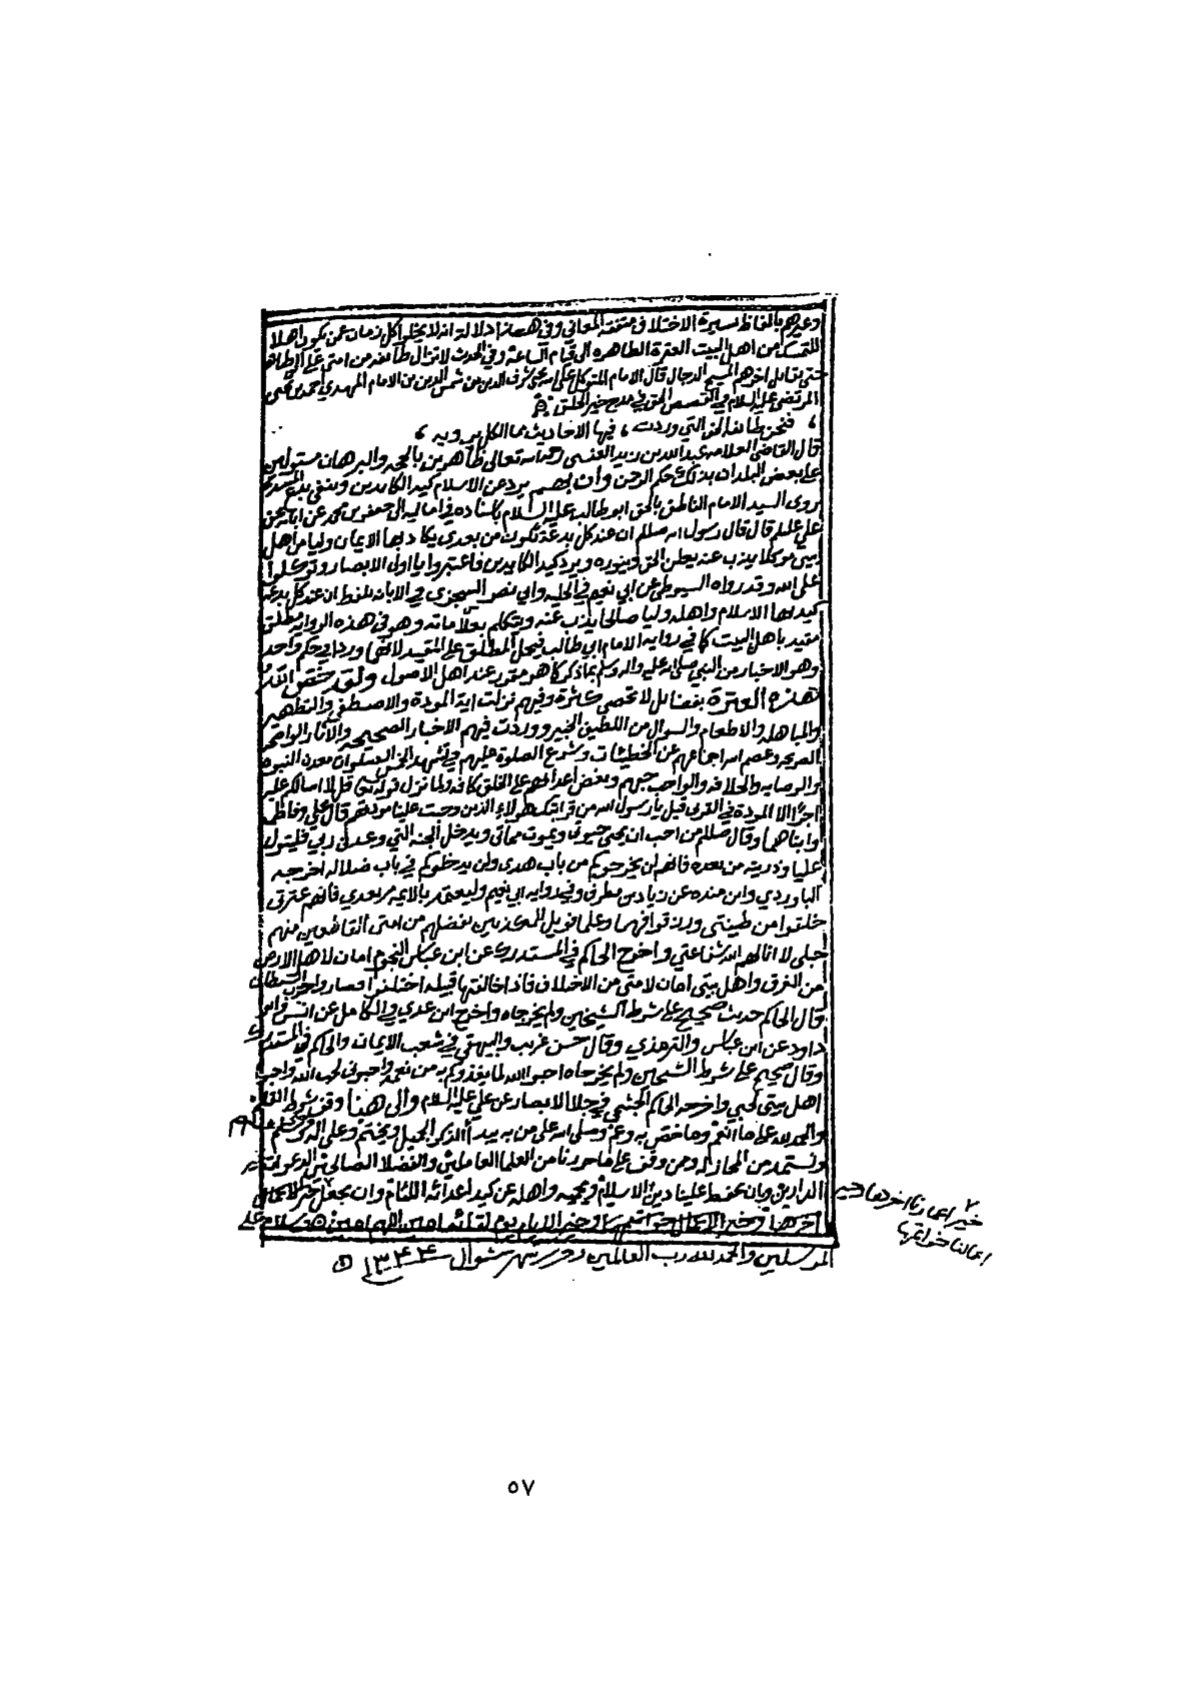 وغيرهم بالفاظ يسيرة الاختلاف متفقه المعاني وفي هذا دلالة انه لا يخلو كل زمان عن يكون اهلا
للتمسك من اهل البيت العترة الطاهره الى قيام الساعة وفي الحديث لا تزال طائفة من امتي على
حتى يقاتل اخرهم المسيح الدجال قال الامام المتوكل على الله يحيى شرف الدين بن شمس الدين بن الامام المهدي احمد بن يحيى
المرتضى عليه السلام في القصص الحق في مدح خير الخلق
فنحن طائفة الحق التي وردت ، فيها الاحاديث مما الكل يرويه ،
قال القاضي العلامه عبد الله بن زيد العنسي رحمه الله تعالى ظاهرين بالحجه والبرهان مستولين
على بعض البلدان بذلك حكم الرحمن وان بهم يرد عن الاسلام كيد الكايدين وينفي بدع
روى السيد الامام الناطق بالحق ابو طالب عليه السلام باسناده في اماليه الى جعفر بن محمد عن ابائه عن
علي عليلم قال قال رسول الله صللم ان عند كل بدعة تكون من بعدي يكاد بها الايمان وليا من اهل
بيتي موكلا يذب عنه يعلن الحق وينوره ويرد كيد الكايدين فاعتبروا يا اولى الابصار وتوكلوا
على الله وقد رواه السيوطي عن ابي نعيم في الحليه وابي نصر السجزي في الابانه بلفظ ان عند كل بدعة
كيد بها الاسلام واهله وليا صالحا يذب عنه ويتكلم بعلاماته وهو في هذه الروايه مطلق
مقيد باهل البيت كما في رواية الامام ابي طالب فيحمل المطلق على المقيد لا وردا في حكم واحد
وهو الاخبار من النبي صلى الله عليه واله وسلم بما ذكر كما هو مقرر عند اهل الاصول ولقد خص الله
هذه العترة بفضائل لا تحصى كثرة وفيهم نزلت اية المودة والاصطفى والتطهير
والمباهله والاطعام والسوال من اللطيف الخبير ووردت فيهم الاخبار الصحيحه والآثار الواضحه
الصريحه وعصم الله اجماعهم عن الخطيئات وشرع الصلوة عليهم في تشهد الخمس الصلوات معدن النبوه
والوصايه والخلافه والواجب حبهم وبغض اعدائهم على الخلق كافه ولما نزل قوله تعالى قل لا اسالكم عليه
اجرًا الا المودة في القربى قيل يا رسول الله من قرابتك هولاء الذين وجبت علينا مودتهم قال علي وفاطمه
وابناهما وقال صللم من احب ان يحيى حيوتي ويموت مماتي ويدخل الجنه التي وعدني ربي فليتول
عليا وذريته من بعده فانهم لن يخرجوكم من باب هدى ولن يدخلوكم في باب ضلاله اخرجه
الباوردي وابن منده عن زياد بن مطرف وفي رواية ابي نعيم وليعتقد بالايمه من بعدي فانهم عترتي
خلقوا من طينتي ورزقوا فهما وعلما فويل للمكذبين بفضلهم من امتي القاطعين منهم
صلتي لا انالهم الله شفاعتي واخرج الحاكم في المستدرك عن ابن عباس النجوم امان لاهل الارض
من الغرق واهل بيتي امان لامتي من الاختلاف فاذا خالفتها قبيله اختلفوا فصاروا حزب الشيطان
قال الحاكم حديث صحيح على شرط الشيخين ولم يخرجاه واخرج ابن عدي في الكامل عن انس وابو
داود عن ابن عباس والترمذي وقال حسن غريب والبيهقي في شعب الايمان والحاكم في المستدرك
وقال صحيح على شرط الشيخين ولم يخرجاه احبوا الله لما يغذوكم به من نعمه واحبوني لحب الله واحبوا
اهل بيتي لحبي واخرجه الحاكم الجشمي في جلا الابصار عن علي عليه السلام والى هنا وقف بنا القلم
والحمد لله على ما انعم وما خص به وعم وصلى الله على من به يبدأ الذكر الجميل ويختم وعلى اله
ونستمد من المجاز له ومن وقف على ما حررنا من العلما العاملين والفضلا الصالحين الدعوات
الدارين وبان يحفظ علينا دين الاسلام ويحميه واهله عن كيد اعدائه اللئام وان يجعل خير
اخرها وخير الاعمال خواتيمها وخير الايام يوم لقائه امين اللهم امين وسلام على
المرسلين والحمد لله رب العالمين شهر شوال ١٣٤٤
٢ خير اعمارنا اخرها وخير
اعمالنا خواتمها
٥٧